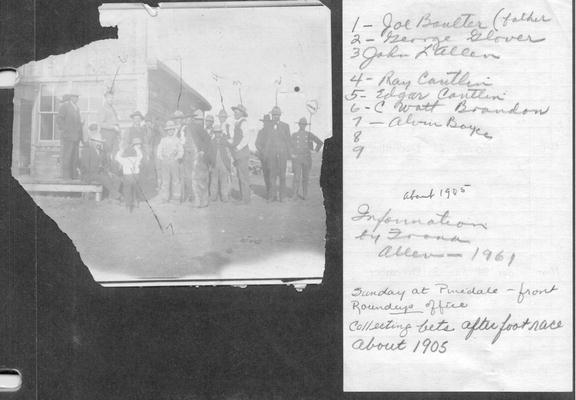 1 - Joe Boulter (father
2 - George Glover
3 John L Allen
4 - Ray Cantlin
5 - Edgar Cantlin
6 - C Watt Brandon
7 - Alvin Boyce
8
9
about 1905
Information
by
Allen - 1961
Sunday at Pinedale - front
Roundup office
Collecting bets after foot race
About 1905